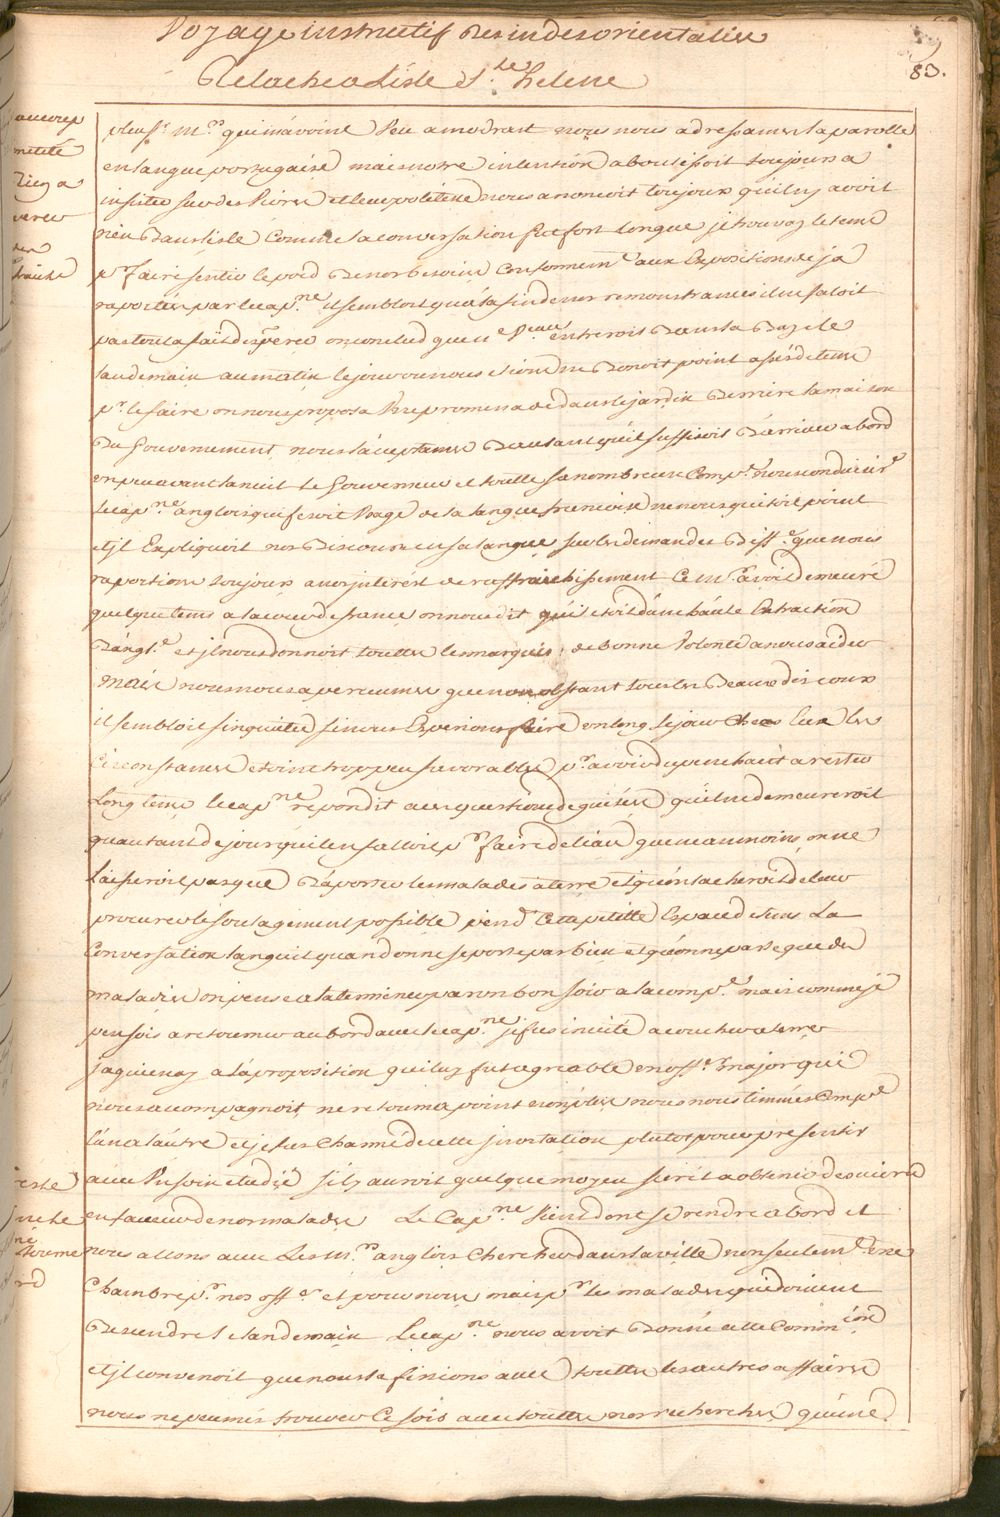 Voyage instructif des indes orientalles
Relache a L'isle S.te helene
83.
plus.rs m.rs qui m'avoient peu a modrast nous nous adressames la parolle
en langue portugaise mais nostre intention aboutissoit toujours a
insister sur des vivres et leur politesse nous anonçoit toujours qu'il n'y avoit
rien dans l'isle Comme la conversation fut fort longue je trouvay le tems
p.r faire sentir le poid de nos besoins Conformem.t aux Expositions deja
raportées par le cap.ne il sembloit qu'a la fin de nos remonstrances il ne faloit
pas tout a fait desperer on conclud que le V.eau entreroit dans la Baye le
landemain au matin le jour ou nous etions ne Donoit point assés de tems
p.r le faire on nous proposa une promenade dans le jardin Derriere la maison
Du Gouvernement, nous l'acceptames D'autant qu'il suffisoit D'arriver a bord
un peu avant la nuit Le Gouverneur et toutte sa nombreuse Comp.e nous conduisir.t
Le cap.ne anglois qui fesoit Usage de la langue francoise ne nous quitoit point
et jl Expliquoit nos Discours en sa langue sur les demandes Diff.e que nous
raportions toujours a nos interest de raffraichissement Ce m.r avoit demeuré
quelque tems a la cour de france on nous dit qu'il etoit d'une haute Extraction
D'angl.e et jl nous donnoit touttes les marques de bonne Volonté a nous aider
mais nous nous aperceumes que nonobstant tous les Beaux discours
il sembloit s'inquieter si nous Esperions faire un long sejour Chés Eux les
Circonstances etoient trop peu favorables p.r avoir du penchant a rester
Long tems le cap.ne repondit aux questions deguisées qu'il ne demeureroit
qu'autant de jour qu'il en falloit p.r faire de l'eau que neanmoins on ne
Laisseroit pas que D'aporter les malades a terre et qu'on tacheroit de leur
procurer le soulagement possible pend.t Cette petitte Espace de tems La
Conversation languit quand on ne se porte pas bien et qu'on ne parle que de
maladies on pensa a la terminer par un bon soir a la comp.e mais comme je
pensois a retourner au bord avec le cap.ne je fus invité a coucher a terre
j'aquiescay a la proposition qui luy fut agreable un off.r major qui
nous accompagnoit, ne retourna point non plus nous nous tinmes Comp.e
l'un a l'autre et je fus Charmé de cette invitation plutot pour pressentir
avec Un soin etudié s'il y auroit quelque moyen secret a obtenir des vivres
en faveur de nos malades Le Cap.ne Vient donc se rendre a bord et
nous allons avec Les m.rs anglois Chercher dans la ville non seulem.t une
Chambre p.r nos off.rs et pour nous mais p.r les malades qui doivent
Descendre le landemain Le cap.ne nous avoit Donné cette Commi.ion
et jl convenoit que nous la finsions avec touttes les autres affaires
nous ne peumes trouver Ce soir avec touttes nos recherches qu'une